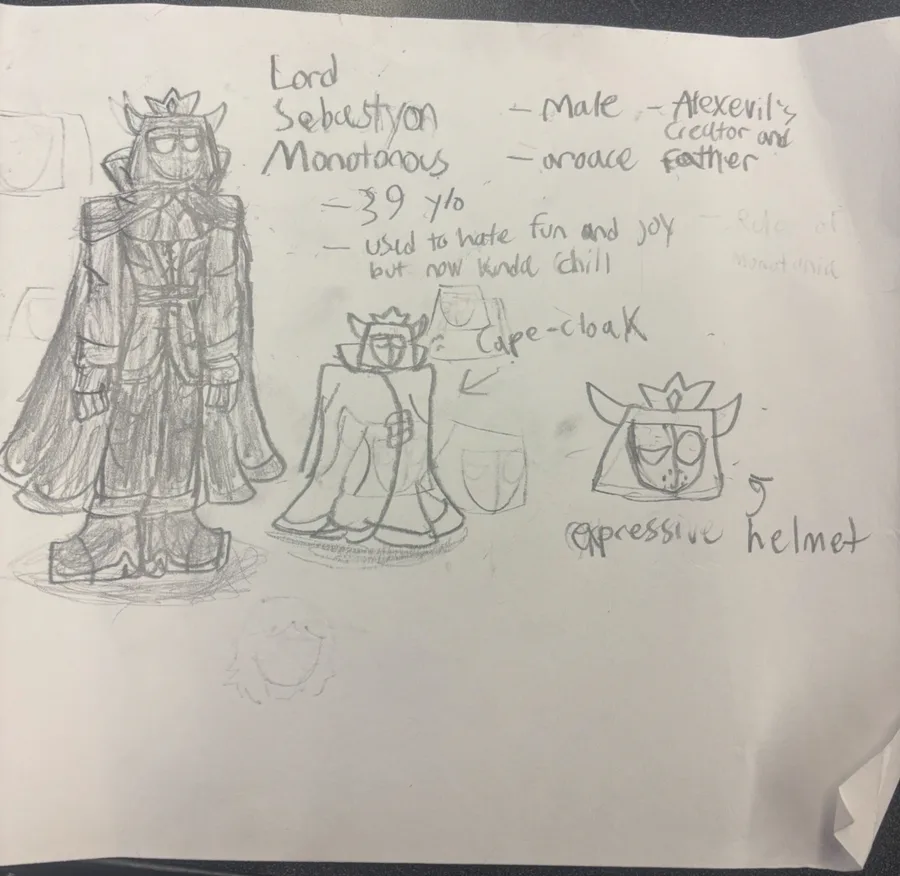 Lord
Sebastyon
Monotonous
- 39 y/o
- used to hate fun and joy
but now kinda chill
- Male
- aroace
- Alexevil's
creator and
father
cape-cloak
expressive helmet